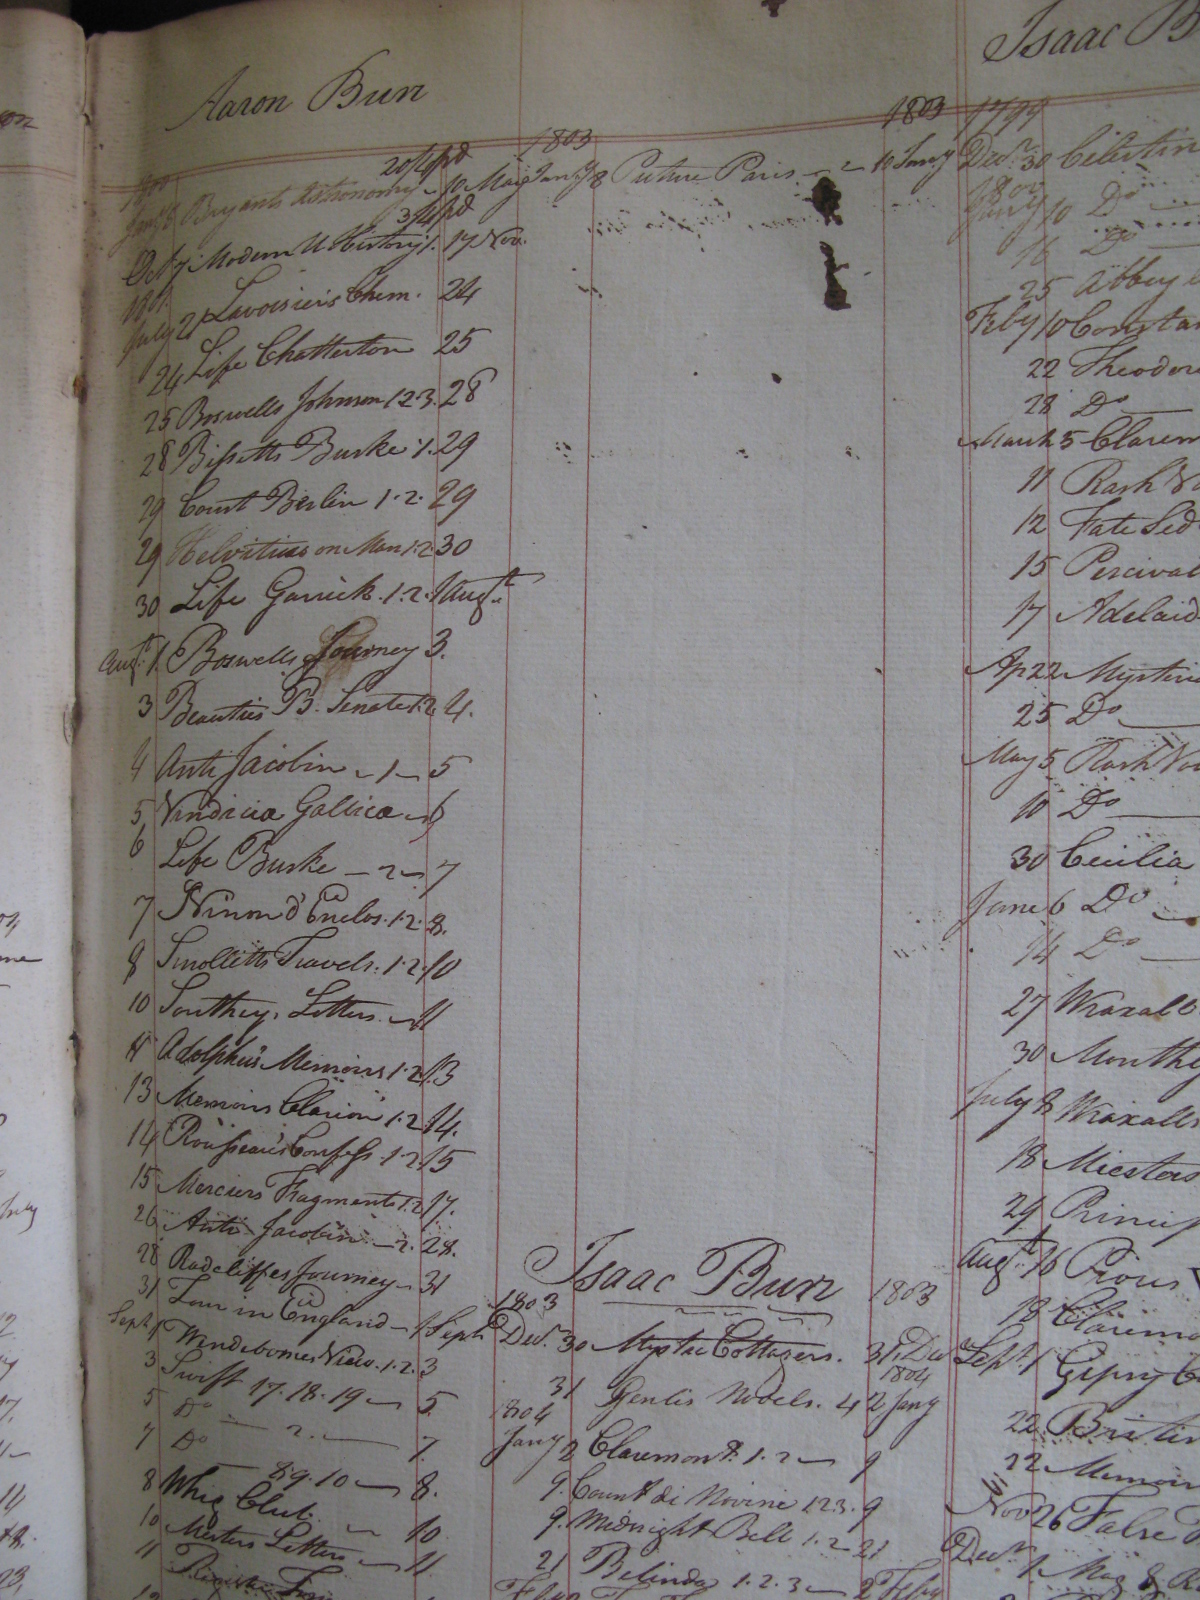 Aaron Burr
1800
20/4 pd
Jany 8 Bryants Astronomy - 10 May
3/4 pd
Oct 7 Modern U History 1. 17 Nov.
1801
July 21 Lavoisiers Chem. 24
24 Life Chatterton 25
25 Boswells Johnson 1.2.3. 28
28 Bissetts Burke 1. 29
29 Court Berlin 1.2. 29
29 Helvitius on Man 1.2. 30
30 Life Garrick. 1.2. 1 Augt
Augt 1. Boswells Journey 3.
3 Beauties B. Senate 1.2. 4.
4 Anti Jacobin - 1 - 5
5 Vindicia Gallica - 6
6 Life Burke - 2 - 7
7 Ninon d'Enclos. 1.2. 8.
8 Smolletts Travels. 1.2. 10
10 Southey, Letters. - 11
11 Adolphus Memoirs 1.2. 13
13 Memoirs Clarion 1.2. 14.
14 Rousseau's Confess. 1.2. 15
15 Merciers Fragments 1.2. 17.
26 Anti Jacobin - 2. 28.
28 Radcliffes Journey - 31
31 Tour in England - 1 Sept
Sept 1 Wendebornes View. 1.2. 3
3 Swift 17.18.19 - 5.
5 Do - 2. - 7.
7 Do - 8 9.10 - 8.
8 Whig Club. - 10
10 Letters - 11
11
12
1803 1803
Jany 8 Picture Paris - 2 10 Jany
Isaac Burr
1803 1803
Decr. 30 Mystic Cottagers. 31. Dec
1804
31 Genlis Novels. 4 2 Jany
1804
Jany 2 Claremont. 1.2 - 9
9. Count di Novini 1 2 3. 9
9. Midnight Bell 1.2 - 21
21 Belinda 1.2.3 - 2 Feby
Feby
Isaac B
1799
Decr. 30 Celestin
1800
Jany 10 Do
16 Do
25 Abbey
Feby 10 Constan
22 Theodor
28 Do
March 5 Clarem
11 Rash Vo
12 Fate Sed
15 Percival
17 Adelaid
Ap 22 Mysteri
25 Do
May 5 Rash Vow
10 Do
30 Cecilia
June 6 Do
14 Do
27 Wraxall
30 Monthly
July 8 Wraxalls
18
29 Princip
Augt 16 Pious
18 Claremo
Sept 1 Gipsy C
22
22 Memoir
Nov 26 False
Decr. 1 Mag &